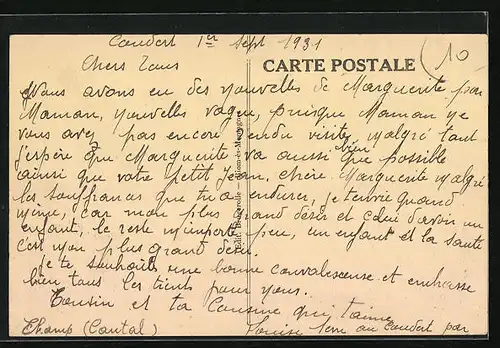 Coudert 1er Sept 1931
10
CARTE POSTALE
Chers Tous
Nous avons eu des nouvelles de Marguerite par
Maman, nouvelles vagues, puisque Maman ne
vous avez pas encore rendu visite, malgré tout
j'espère que Marguerite va aussi bien que possible
ainsi que votre petit Jean, chère Marguerite malgré
les souffrances que tu a endurer, je t'envie quand
même, car mon plus grand désir et celui d'avoir un
enfant, le reste m'importe peu, un enfant et la santé
c'est mon plus grand désir.
Je te souhaite une bonne convaliscense et embrasse
bien tous les tiens pour nous.
Cousin et ta Cousine qui t'aime
Champ (Cantal)
Louise au Coudert par
Edit.